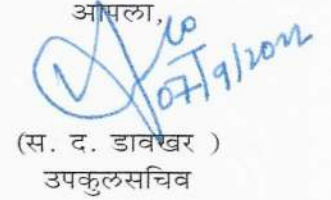 आपला,
07/9/2022
(स. द. डावखर )
उपकुलसचिव